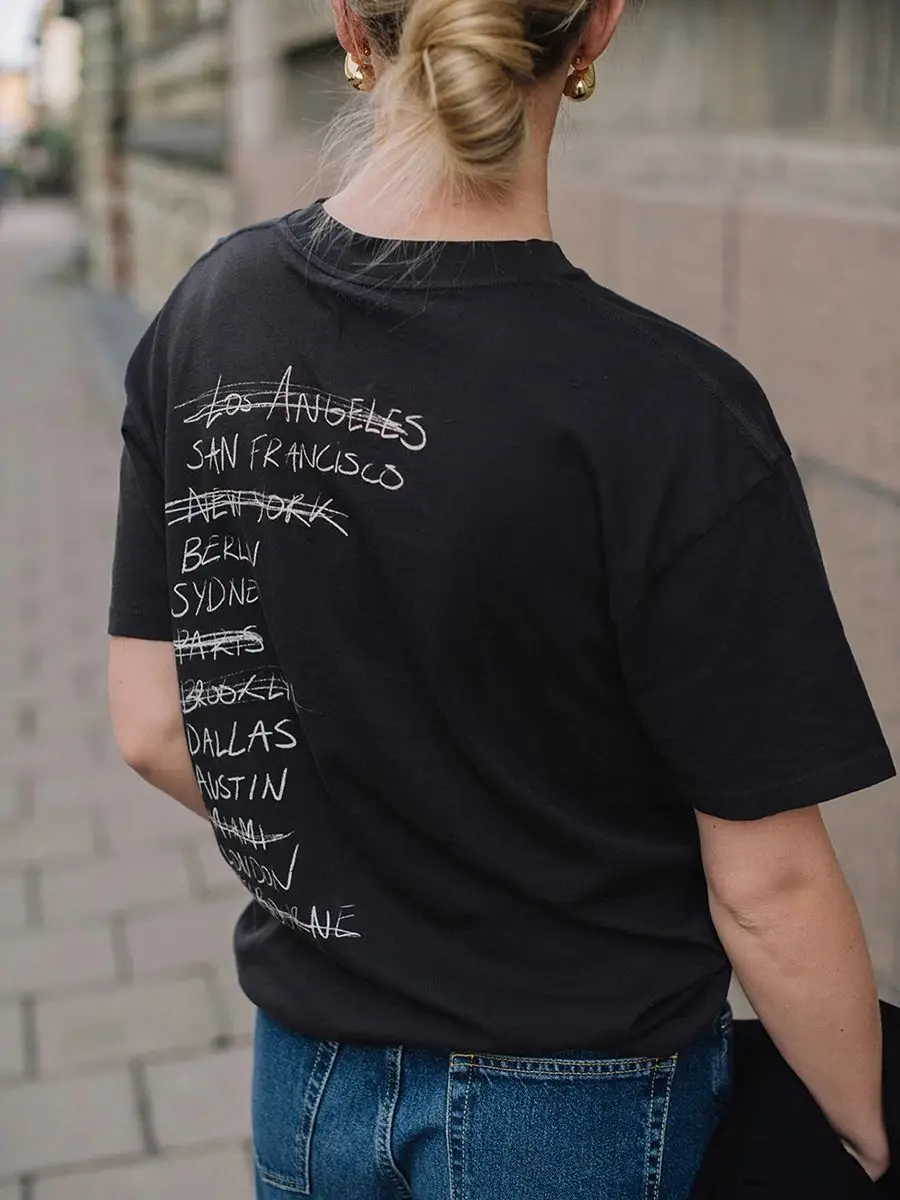 Los ANGELES
SAN FRANCISCO
NEW YORK
BERLIN
SYDNE
PARIS
BROOKLI
DALLAS
AUSTIN
MIAMI
LONDON